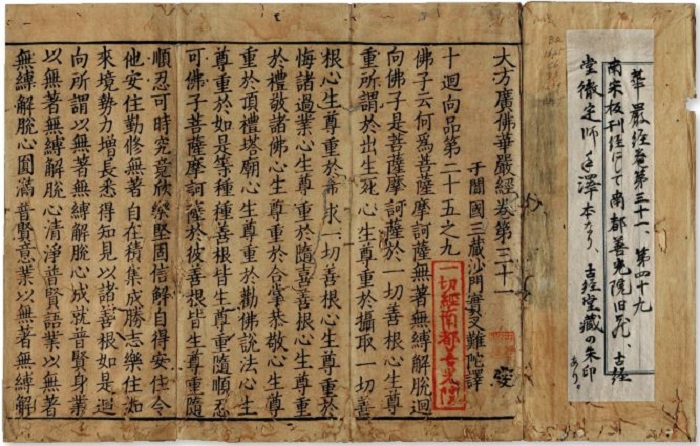 華嚴経卷第三十一、第四十九
南宋板刊経にして南都善光院旧蔵、古経
堂徹定師手澤本なり、古経堂蔵の朱印
あり。
大方廣佛華嚴經卷第三十一
于闐國三藏沙門實叉難陀譯
一切經南都善光院
十迴向品第二十五之九
佛子云何為菩薩摩訶薩無著無縛解脫迴
向佛子是菩薩摩訶薩於一切善根心生尊
重所謂於出生死心生尊重於攝取一切善
根心生尊重於希求一切善根心生尊重於
悔諸過業心生尊重於隨喜善根心生尊重
於禮敬諸佛心生尊重於合掌恭敬心生尊
重於頂禮塔廟心生尊重於勸佛說法心生
尊重於如是等種種善根皆生尊重隨順忍
可佛子菩薩摩訶薩於彼善根皆生尊重隨
順忍可時究竟欣樂堅固信解自得安住令
他安住勤修無著自在積集成勝志樂住如
來境勢力增長悉得知見以諸善根如是迴
向所謂以無著無縛解脫心成就普賢身業
以無著無縛解脫心清淨普賢語業以無著
無縛解脫心圓滿普賢意業以無著無縛解